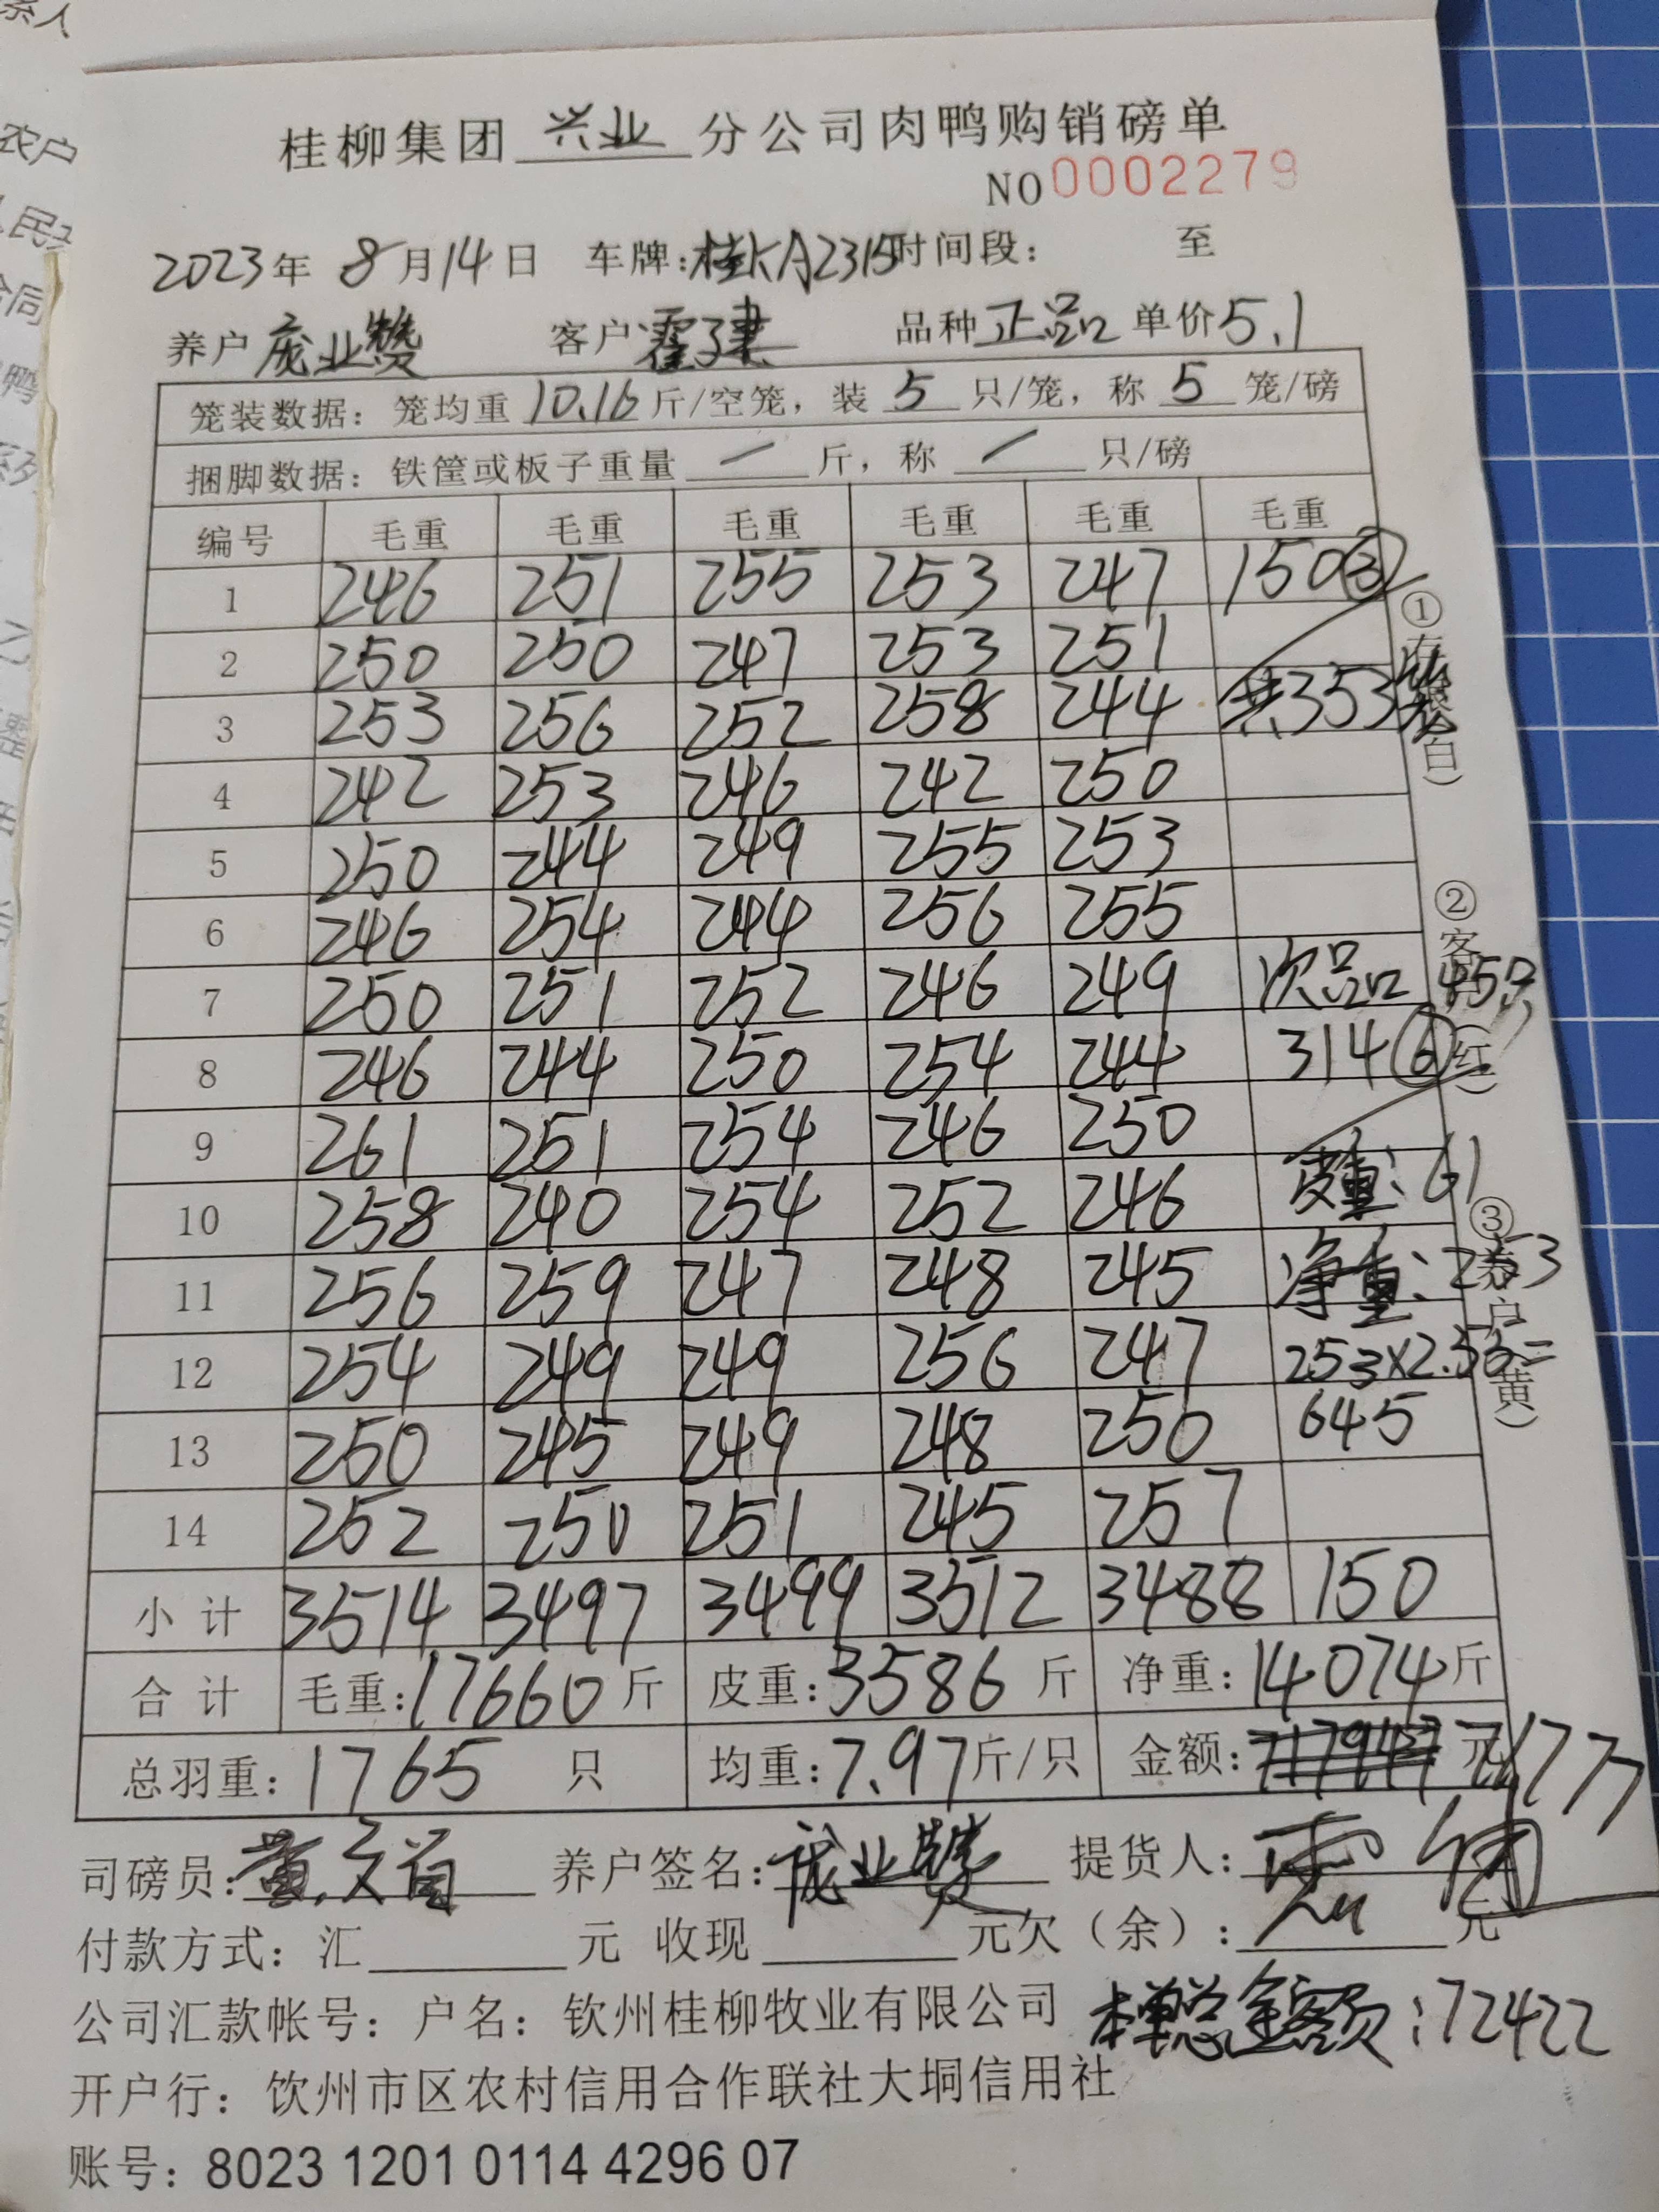 桂柳集团 兴业 分公司肉鸭购销磅单
NO 0002279
2023年 8月14日 车牌:桂KA2315 时间段: 至
养户 庞业赞 客户 霍建 品种 正品 单价 5.1
笼装数据: 笼均重 10.16 斤/空笼, 装 5 只/笼, 称 5 笼/磅
捆脚数据: 铁筐或板子重量 / 斤, 称 / 只/磅
编号 毛重 毛重 毛重 毛重 毛重 毛重
1 246 251 255 253 247 150③
2 250 250 247 253 251
3 253 256 252 258 244 共353笼
4 242 253 246 242 250
5 250 244 249 255 253
6 246 254 244 256 255
7 250 251 252 246 249 次品 45只
8 246 244 250 254 244 314⑥
9 261 251 254 246 250
10 258 240 254 252 246 皮重: 61
11 256 259 247 248 245 净重: 253
12 254 249 249 256 247 253×2.55=
13 250 245 249 248 250 645
14 252 250 251 245 257
小计 3514 3497 3499 3512 3488 150
合计 毛重:17660斤 皮重:3586斤 净重:14074斤
总羽重:1765 只 均重:7.97斤/只 金额: 元 71777
司磅员: 养户签名:庞业赞 提货人:
付款方式: 汇 元 收现 元欠(余): 元
公司汇款帐号: 户名: 钦州桂柳牧业有限公司
本单总金额:72422
开户行: 饮州市区农村信用合作联社大垌信用社
账号: 8023 1201 0114 4296 07
①存根(白)
②客(红)
③养户(黄)